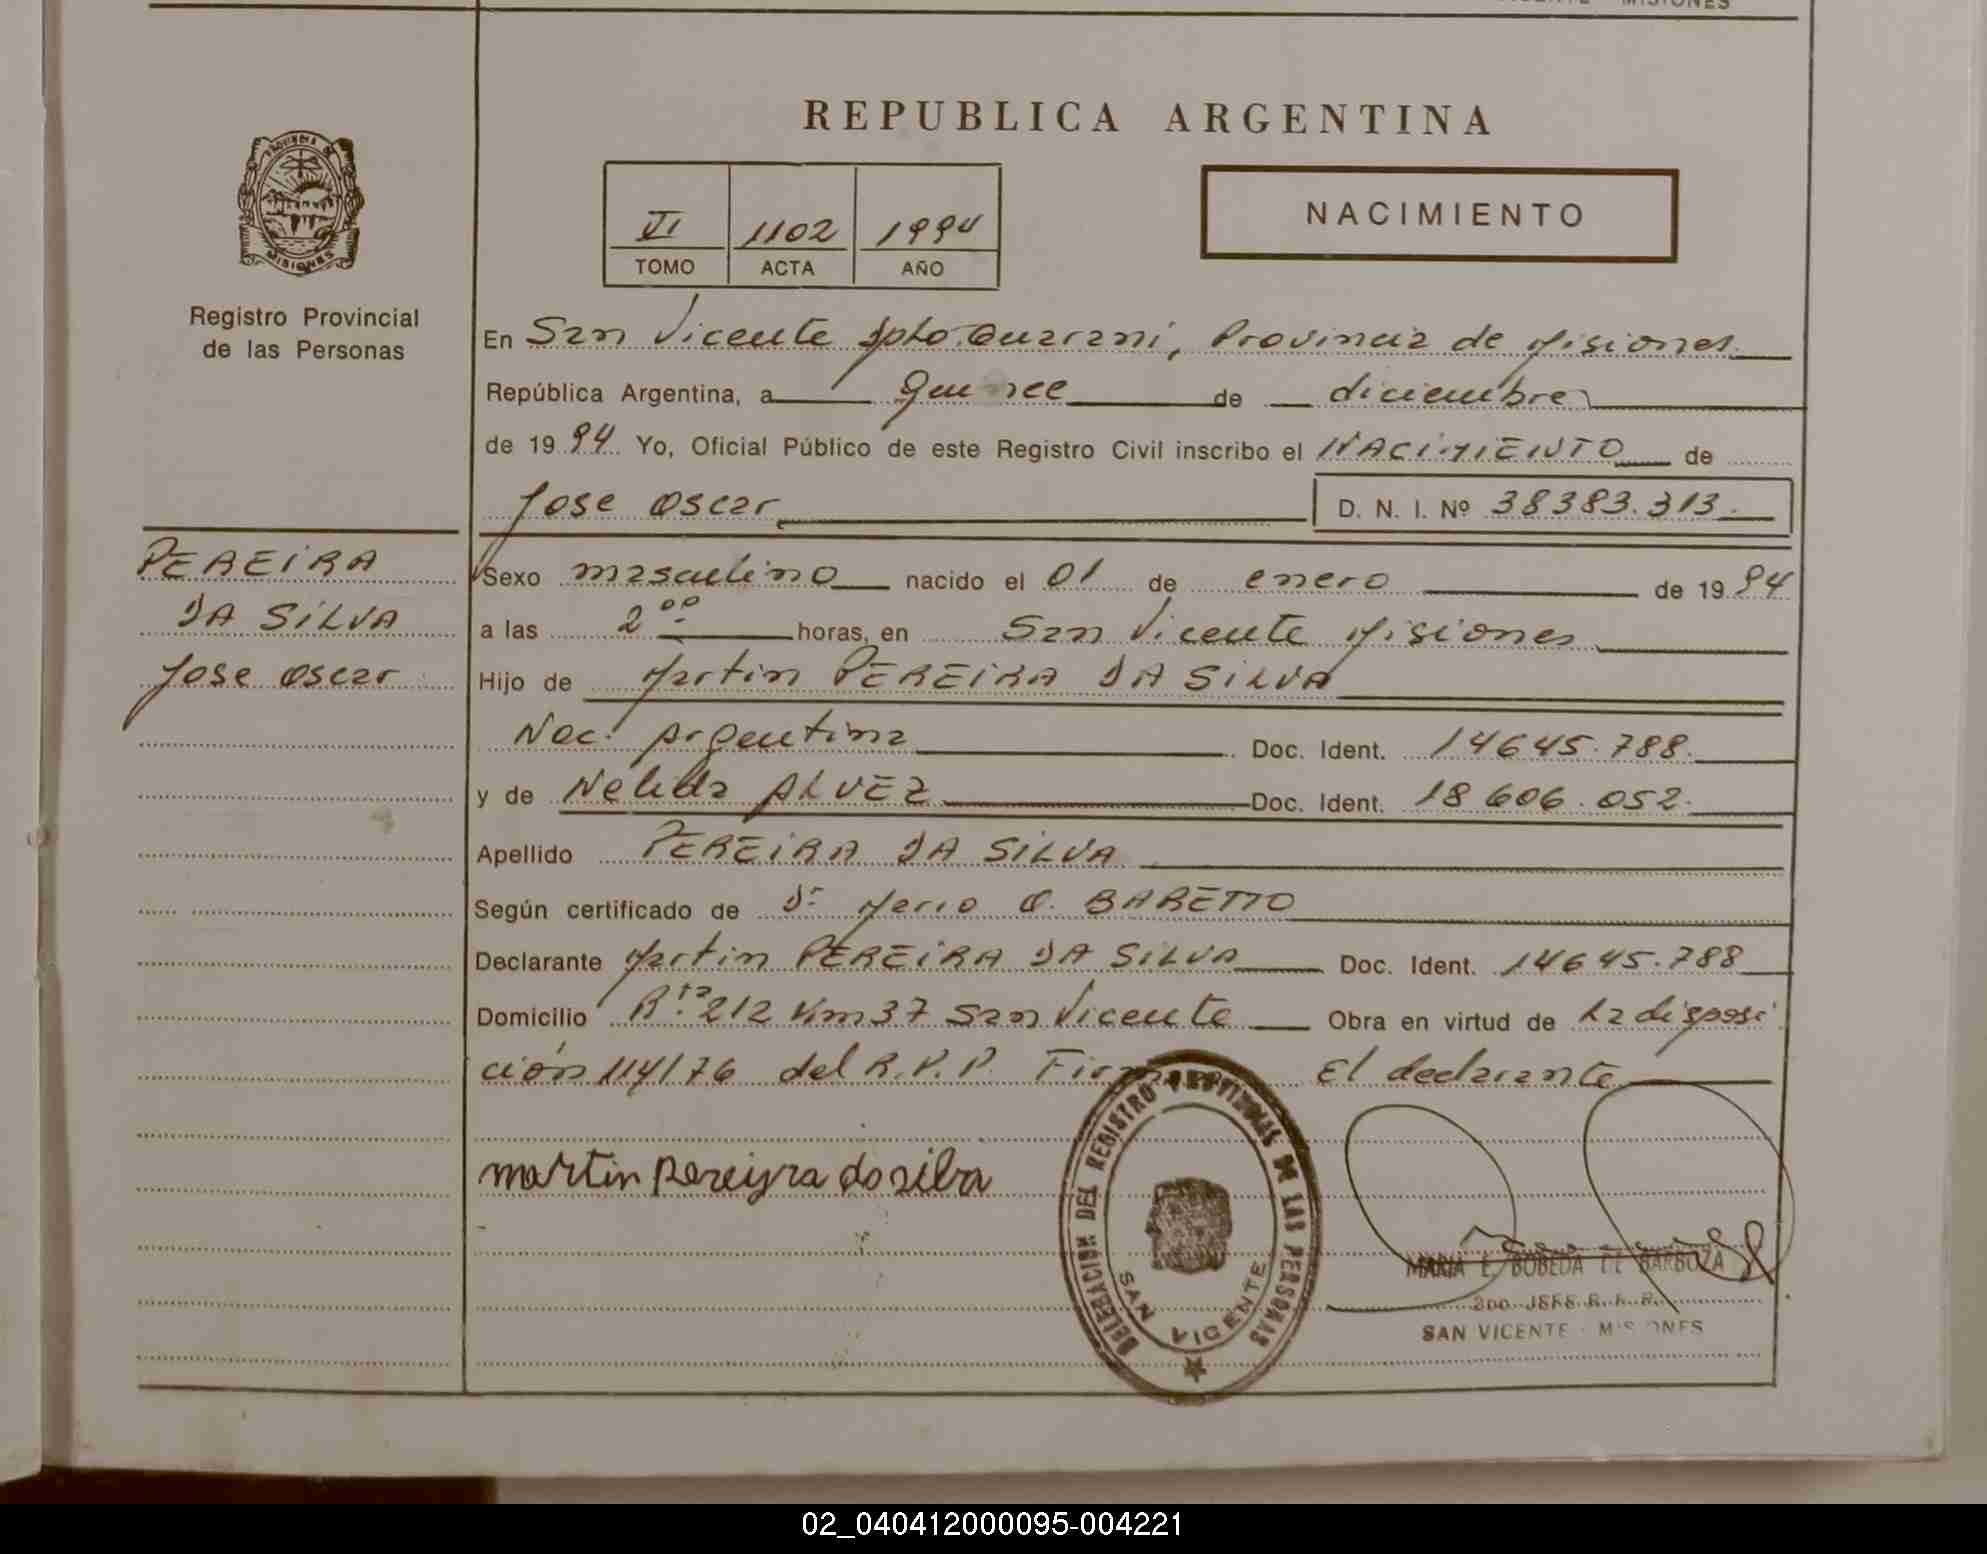 MISIONES
REPUBLICA ARGENTINA
PROVINCIA DE
MISIONES
VI 1102 1994
TOMO ACTA AÑO
NACIMIENTO
Registro Provincial
de las Personas
En San Vicente Dpto. Guarani, Provincia de Misiones
República Argentina, a quince de diciembre
de 1994 Yo, Oficial Público de este Registro Civil inscribo el NACIMIENTO de
Jose Oscar D. N. I. Nº 38383.313.
PEREIRA
DA SILVA
Jose Oscar
Sexo masculino nacido el 01 de enero de 1994
a las 2 00 horas, en San Vicente Misiones
Hijo de Martin PEREIRA DA SILVA
Nac. Argentina Doc. Ident. 14645.788.
y de Nelida ALVEZ Doc. Ident. 18606.052.
Apellido PEREIRA DA SILVA
Según certificado de Dr Mario O. BARETTO
Declarante Martin PEREIRA DA SILVA Doc. Ident. 14645.788
Domicilio Rta. 212 Km 37 San Vicente Obra en virtud de la disposi
ción 114/76 del R.P.P. El declarante
martin Pereiyra da silva
DELEGACION DEL REGISTRO PROVINCIAL DE LAS PERSONAS
SAN VICENTE
MARIA E. BOBEDA DE BARBOZA
2do. JEFE R. P. P.
SAN VICENTE - MISIONES
02_040412000095-004221